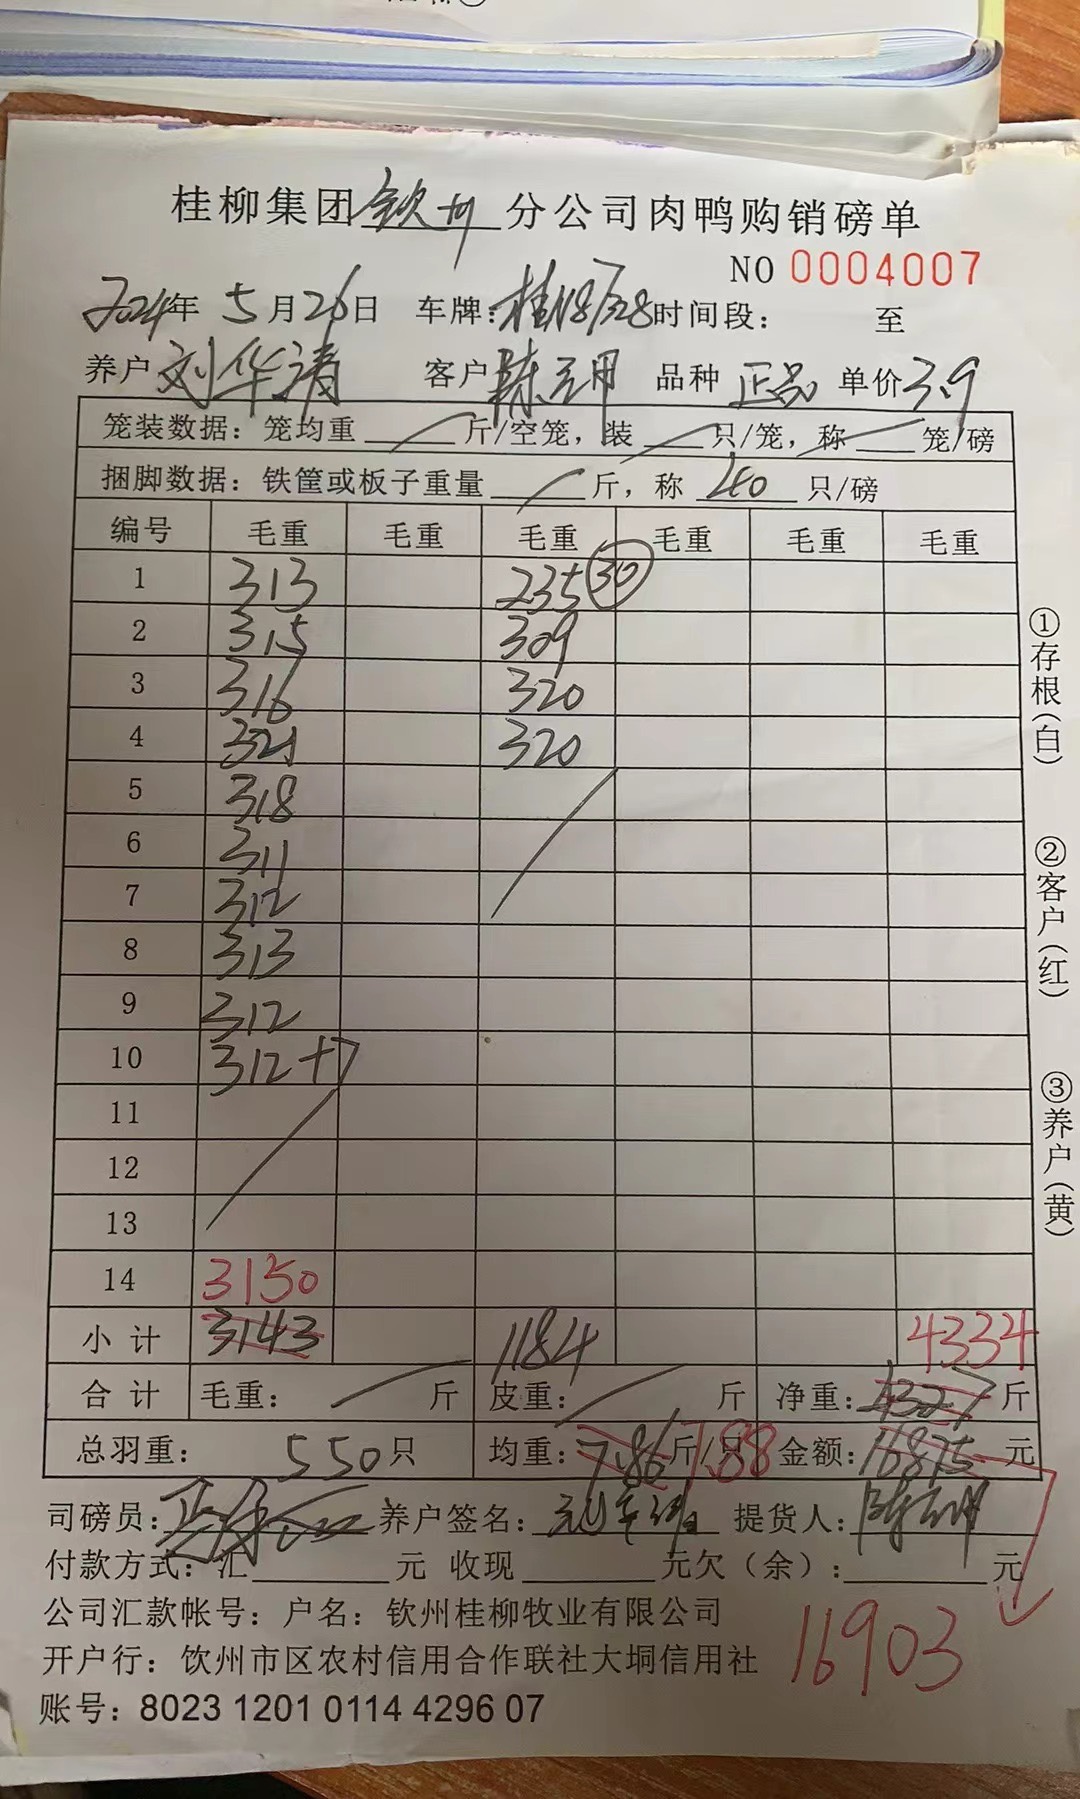 桂柳集团钦州分公司肉鸭购销磅单
NO 0004007
2024年 5月26日 车牌: 时间段: 至
养户 刘华清 客户 品种 正品 单价 3.9
笼装数据: 笼均重 斤/空笼, 装 只/笼, 称 笼/磅
捆脚数据: 铁筐或板子重量 斤, 称 40 只/磅
编号 毛重 毛重 毛重 毛重 毛重 毛重
1 313 235 30
2 315 309
3 316 320
4 321 320
5 318
6 311
7 312
8 313
9 312
10 312+7
11
12
13
14 3150
小计 3143 1184 4334
合计 毛重: 斤 皮重: 斤 净重: 4327 斤
总羽重: 550只 均重: 7.86 斤/只 7.88 金额: 16875 元
司磅员: 养户签名: 提货人:
付款方式: 汇 元 收现 元欠(余): 元
公司汇款帐号: 户名: 钦州桂柳牧业有限公司
16903
开户行: 钦州市区农村信用合作联社大垌信用社
账号: 8023 1201 0114 4296 07
①存根(白)
②客户(红)
③养户(黄)